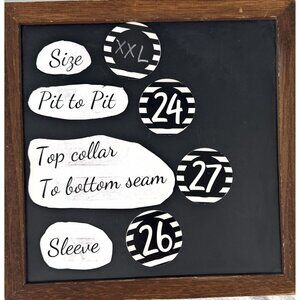 Size XXL
Pit to Pit 24
Top collar
To bottom seam 27
Sleeve 26